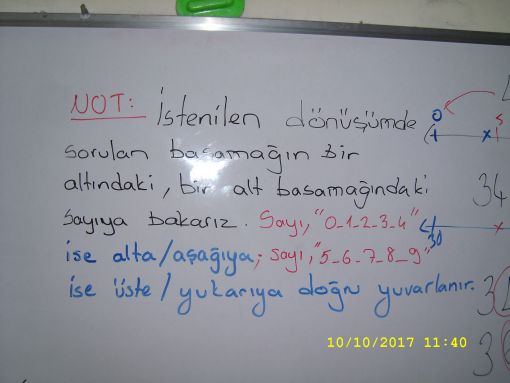 NOT: İstenilen dönüşümde
sorulan basamağın bir
altındaki, bir alt basamağındaki
sayıya bakarız. Sayı, "0-1-2-3-4"
ise alta/aşağıya; sayı, "5-6-7-8-9"
ise üste/yukarıya doğru yuvarlanır.
0
5
34
30
3
3
10/10/2017 11:40